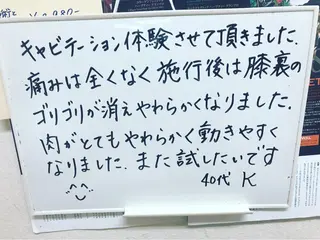 キャビテーション体験させて頂きました.
痛みは全くなく施行後は膝裏の
ゴリゴリが消えやわらかくなりました.
肉がとてもやわらかく動きやすく
なりました. また試したいです
40代 K